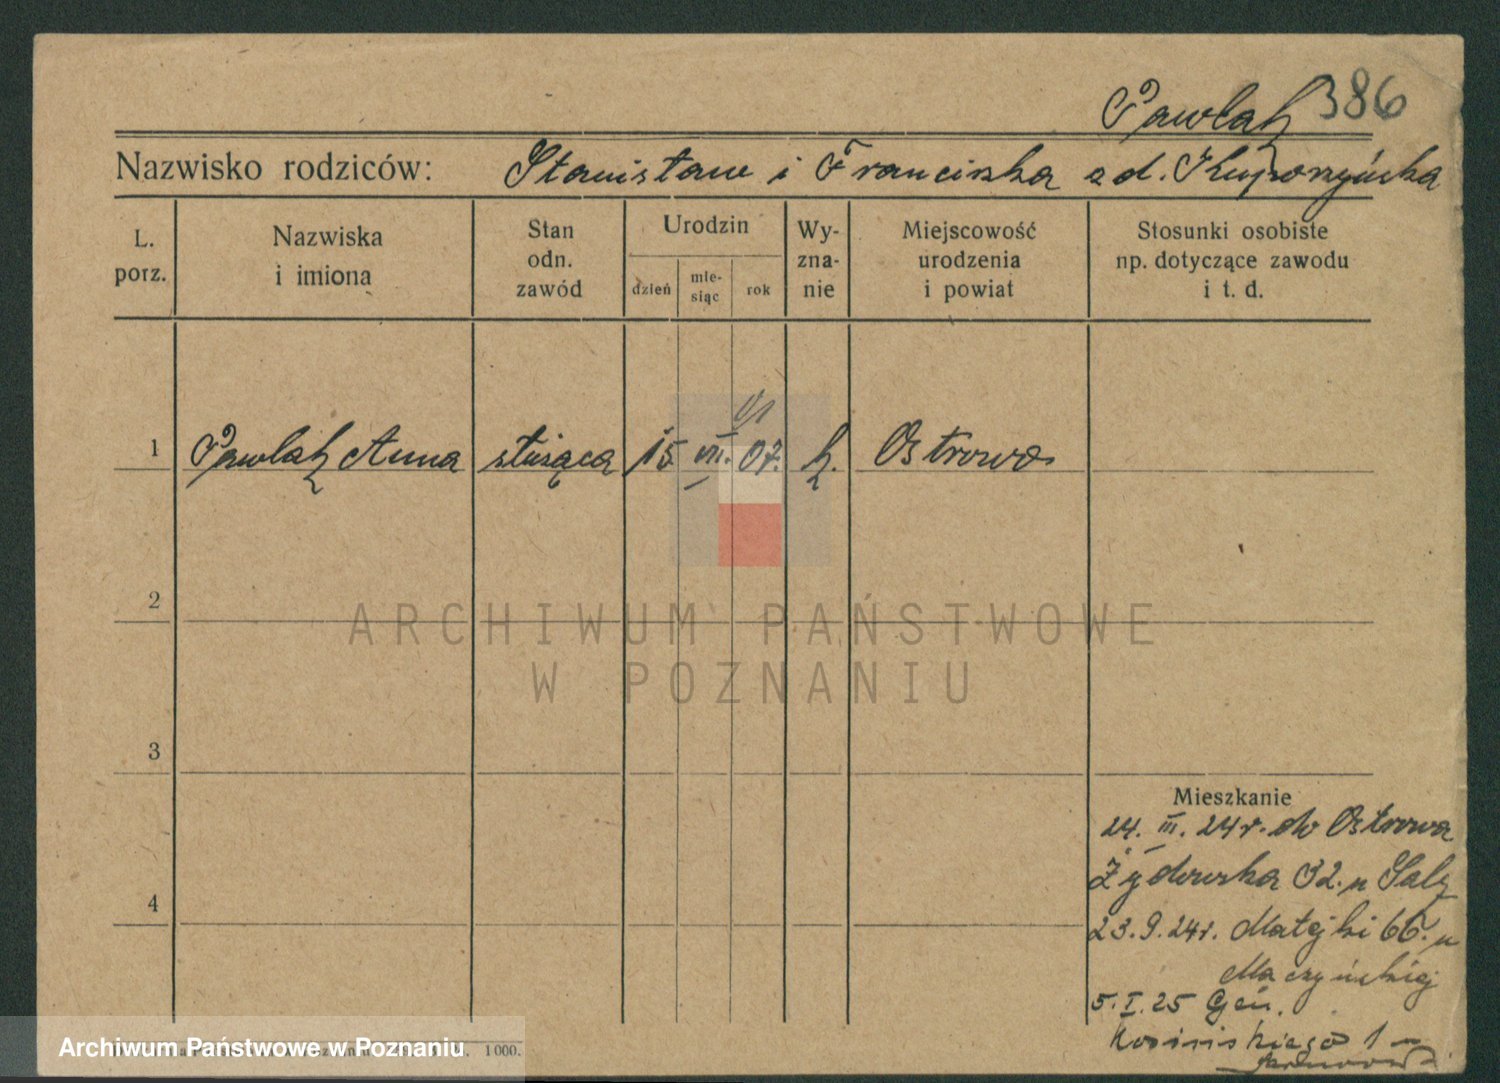 Pawlak 386
Nazwisko rodziców: Stanisław i Franciszka z d.
L. porz.
Nazwiska i imiona
Stan odn. zawód
Urodzin
dzień
mie- siąc
rok
Wy- zna- nie
Miejscowość urodzenia i powiat
Stosunki osobiste np. dotyczące zawodu i t. d.
01
1 Pawlak Anna służąca 15 VII. 07. k. Ostrowo
2
ARCHIWUM PAŃSTWOWE
W POZNANIU
3
Mieszkanie
24. III. 24r. do Ostrowa
Żydowska 32. u Saly
4
23. 9. 24r. Matejki 66. u
Maczyńskiej
5. I. 25 Gen.
Kosińskiego 1 u
Archiwum Państwowe w Poznaniu
1000.